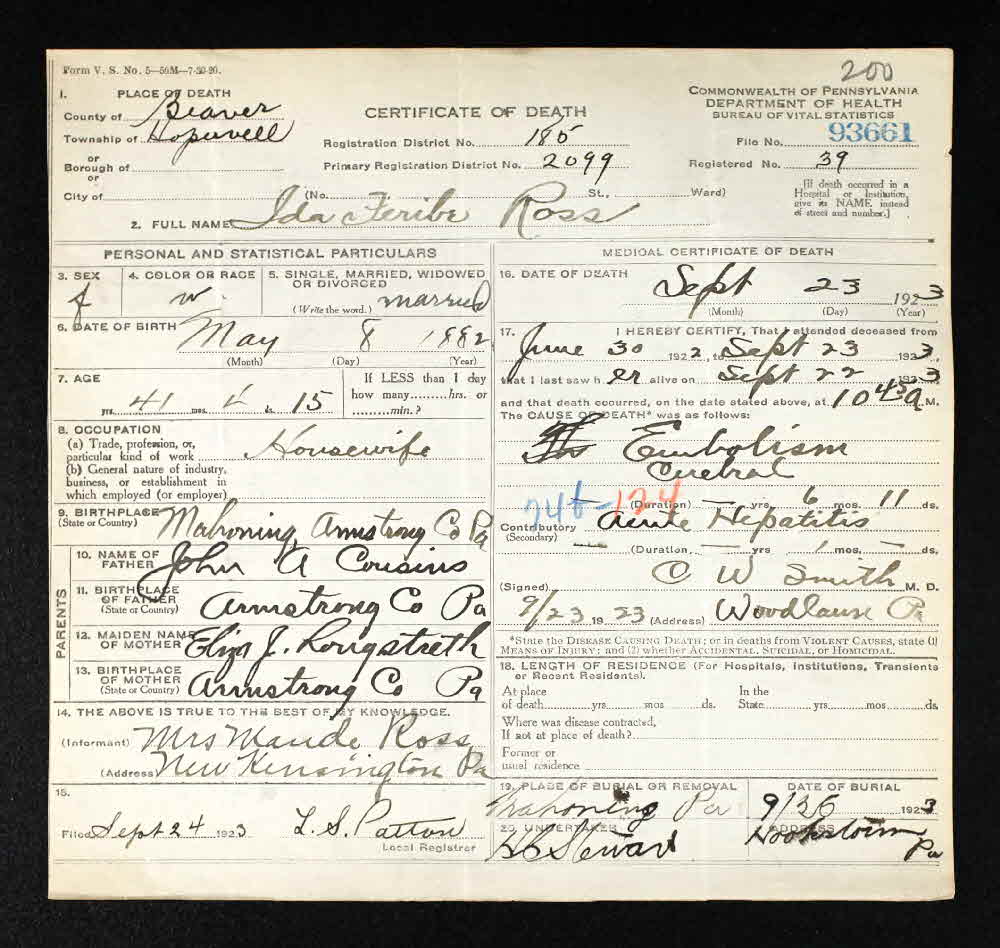 Form V. S. No. 5—50M—7-20-20.
200
1. PLACE OF DEATH
County of Beaver
Township of Hopewell
or
Borough of
or
City of
CERTIFICATE OF DEATH
Registration District No. 185
Primary Registration District No. 2099
(No. St., Ward)
COMMONWEALTH OF PENNSYLVANIA
DEPARTMENT OF HEALTH
BUREAU OF VITAL STATISTICS
File No. 93661
Registered No. 39
[If death occurred in a
Hospital or Institution,
give its NAME instead
of street and number.]
2. FULL NAME Ida Ross
PERSONAL AND STATISTICAL PARTICULARS
3. SEX
f
4. COLOR OR RACE
w.
5. SINGLE, MARRIED, WIDOWED
OR DIVORCED
(Write the word.) married
6. DATE OF BIRTH May 8 1882
(Month) (Day) (Year)
7. AGE
yrs. 41 mos. 4 ds. 15
If LESS than 1 day
how many hrs. or
min.?
8. OCCUPATION
(a) Trade, profession, or,
particular kind of work Housewife
(b) General nature of industry,
business, or establishment in
which employed (or employer)
9. BIRTHPLACE
(State or Country) Mahoning, Armstrong Co Pa
PARENTS
10. NAME OF
FATHER John A Cousins
11. BIRTHPLACE
OF FATHER
(State or Country) Armstrong Co Pa
12. MAIDEN NAME
OF MOTHER Eliza J. Longstreth
13. BIRTHPLACE
OF MOTHER
(State or Country) Armstrong Co Pa
14. THE ABOVE IS TRUE TO THE BEST OF MY KNOWLEDGE.
(Informant) Mrs Maude Ross
(Address) New Kensington Pa
15.
Filed Sept 24 1923 L. S. Patton
Local Registrar
MEDICAL CERTIFICATE OF DEATH
16. DATE OF DEATH
Sept 23 1923
(Month) (Day) (Year)
17. I HEREBY CERTIFY, That I attended deceased from
June 30 1922, to Sept 23 1923
that I last saw h er alive on Sept 22 1923
and that death occurred, on the date stated above, at 10 45 a M.
The CAUSE OF DEATH* was as follows:
Embolism
Cerebral
(Duration) — yrs. 6 mos. 11 ds.
124
Contributory Acute Hepatitis
(Secondary)
(Duration — yrs 1 mos. — ds.
(Signed) C W Smith M. D.
9/23 1923 (Address) Woodlawn Pa
*State the DISEASE CAUSING DEATH; or in deaths from VIOLENT CAUSES, state (1)
MEANS OF INJURY; and (2) whether ACCIDENTAL, SUICIDAL, or HOMICIDAL.
18. LENGTH OF RESIDENCE (For Hospitals, Institutions, Transients
or Recent Residents).
At place
of death yrs. mos ds.
In the
State yrs. mos ds.
Where was disease contracted,
If not at place of death?
Former or
usual residence
19. PLACE OF BURIAL OR REMOVAL
Mahoning Pa
DATE OF BURIAL
9/26 1923
20. UNDERTAKER
H C Stewart
ADDRESS
Hookstown
Pa